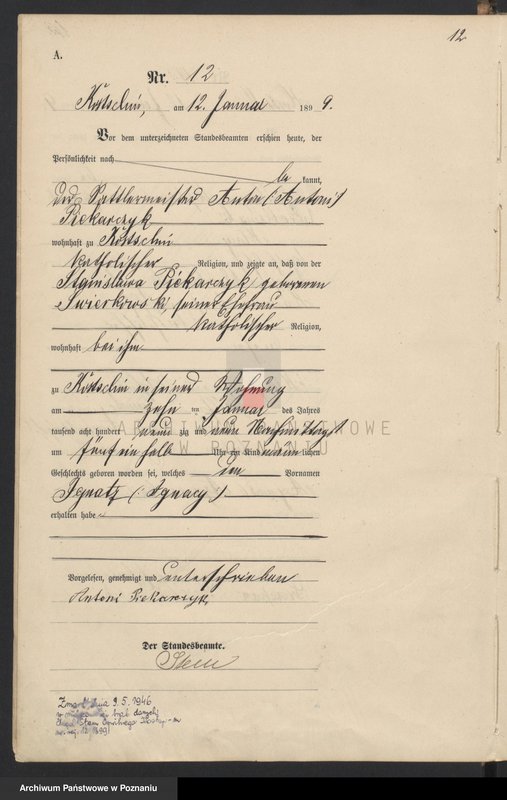 12
A.
Nr. 12
Kostschin, am 12. Januar 1899.
Vor dem unterzeichneten Standesbeamten erschien heute, der
Persönlichkeit nach
be kannt,
der Sattlermeister Anton (Antoni)
Piekarczyk
wohnhaft zu Kostschin
katholischer Religion, und zeigte an, daß von der
Stanislawa Piekarczyk geborenen
Swierkowski, seiner Ehefrau
katholischer Religion,
wohnhaft bei ihm
zu Kostschin in seiner Wohnung
am zehn ten Januar des Jahres
tausend acht hundert neun zig und neun Nachmittags
um fünf ein halb Uhr ein Kind männlichen
Geschlechts geboren worden sei, welches den Vornamen
Ignatz (Ignacy)
erhalten habe
Vorgelesen, genehmigt und unterschrieben
Antoni Piekarczyk
Der Standesbeamte.
Zmarł dnia 9.5.1946
ARCHIWUM PAŃSTWOWE
W POZNANIU
Archiwum Państwowe w Poznaniu